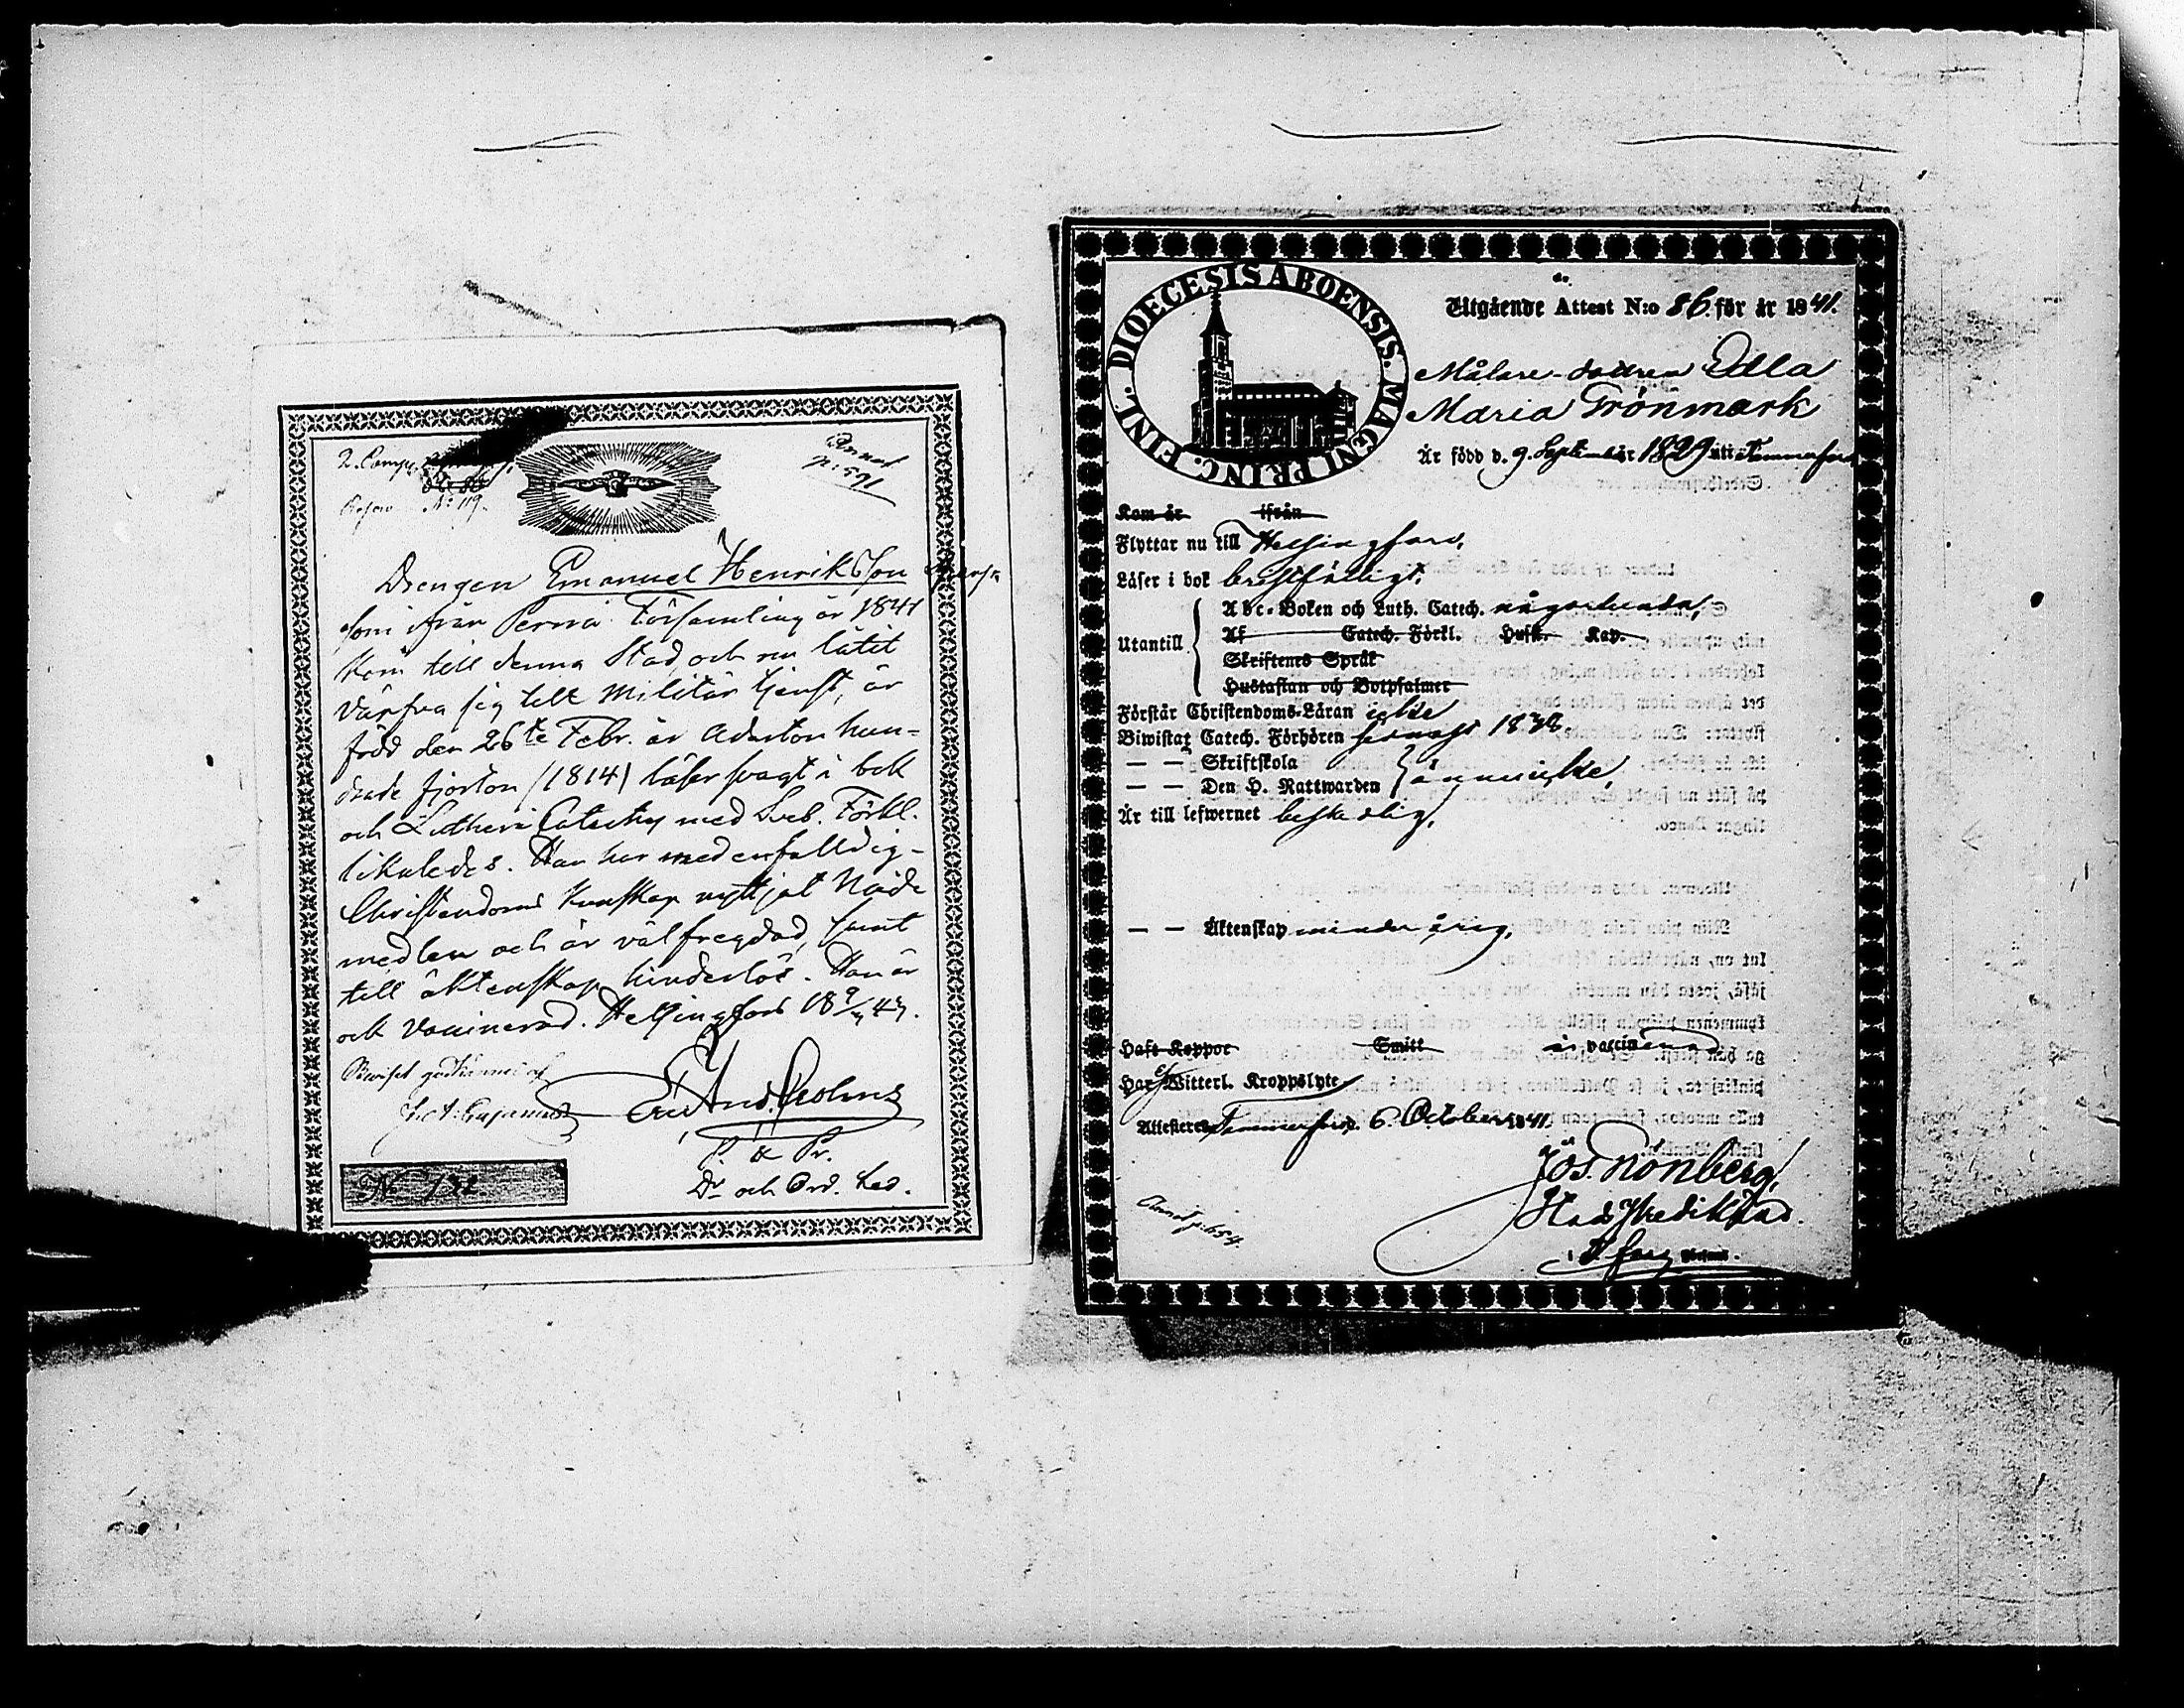 2. Comp.
No 119.
Annot
p: 591
Drengen Emanuel Henriksson
som ifrån Perno Församling år 1841
kom till denna Stad, och nu låtit
värfva sig till Militär tjenst, är
född den 26te Febr. år Aderton hun-
drade fjorton (1814) läser svagt i bok
och Lutheri Catechs med Sveb. Förkl.
likaledes. Han har med enfalldig
Christendoms kunskap nyttjat Nåde
medlen och är välfregdad, samt
till äktenskap hinderlös. Han är
ock vaccinerad. Helsingfors 18 9/ 43.
P. & Pr.
Dr och Ord. Led.
No 132
DIOECESIS ABOENSIS. MAGNI PRINC. FINL.
Utgående Attest N:o 86 för år 1841.
Målare-dottren Edla
Maria Trönmark
Är född d. 9. September 1829 uti Tammerfors
Kom år ifrån
Flyttar nu till Helsingfors,
Läser i bok bristfälligt,
Utantill
Abc-Boken och Luth. Catech. någorlunda,
Af Catech. Förkl. Hust. Kap.
Skriftenes Språk
Hustaflan och Botpsalmer
Förstår Christendoms-Läran icke
Biwistat Catech. Förhören
— — Skriftskola
— — Den H. Nattwarden
ännu icke,
Är till lefwernet beskedlig,
— — Äktenskap minderårig,
Haft Koppor Smitt är vaccinerad
Har ej Witterl. Kroppslyte
Attesteras Tammerfors d. 6. October 1841.
Jos. Grönberg,
Annot p. 654.